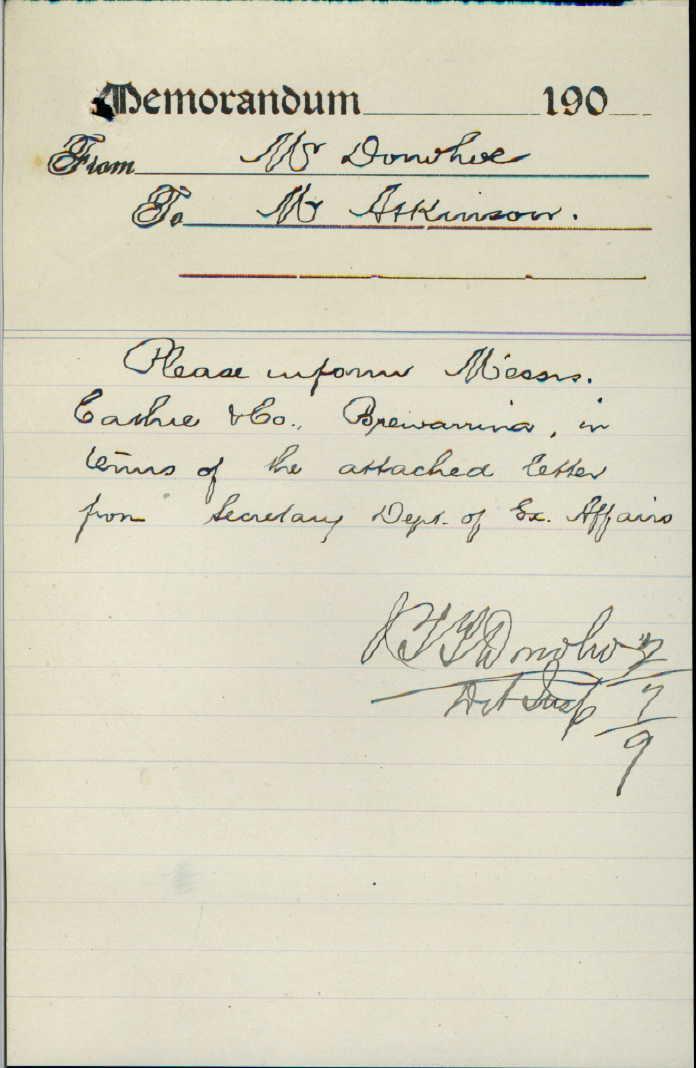 Memorandum 190
From Mr Donohoe
To Mr Atkinson.
Please inform Messrs.
&Co., Brewarrina, in
terms of the attached letter
from Secretary Dept. of Ex. Affairs
Donohoe
7
9